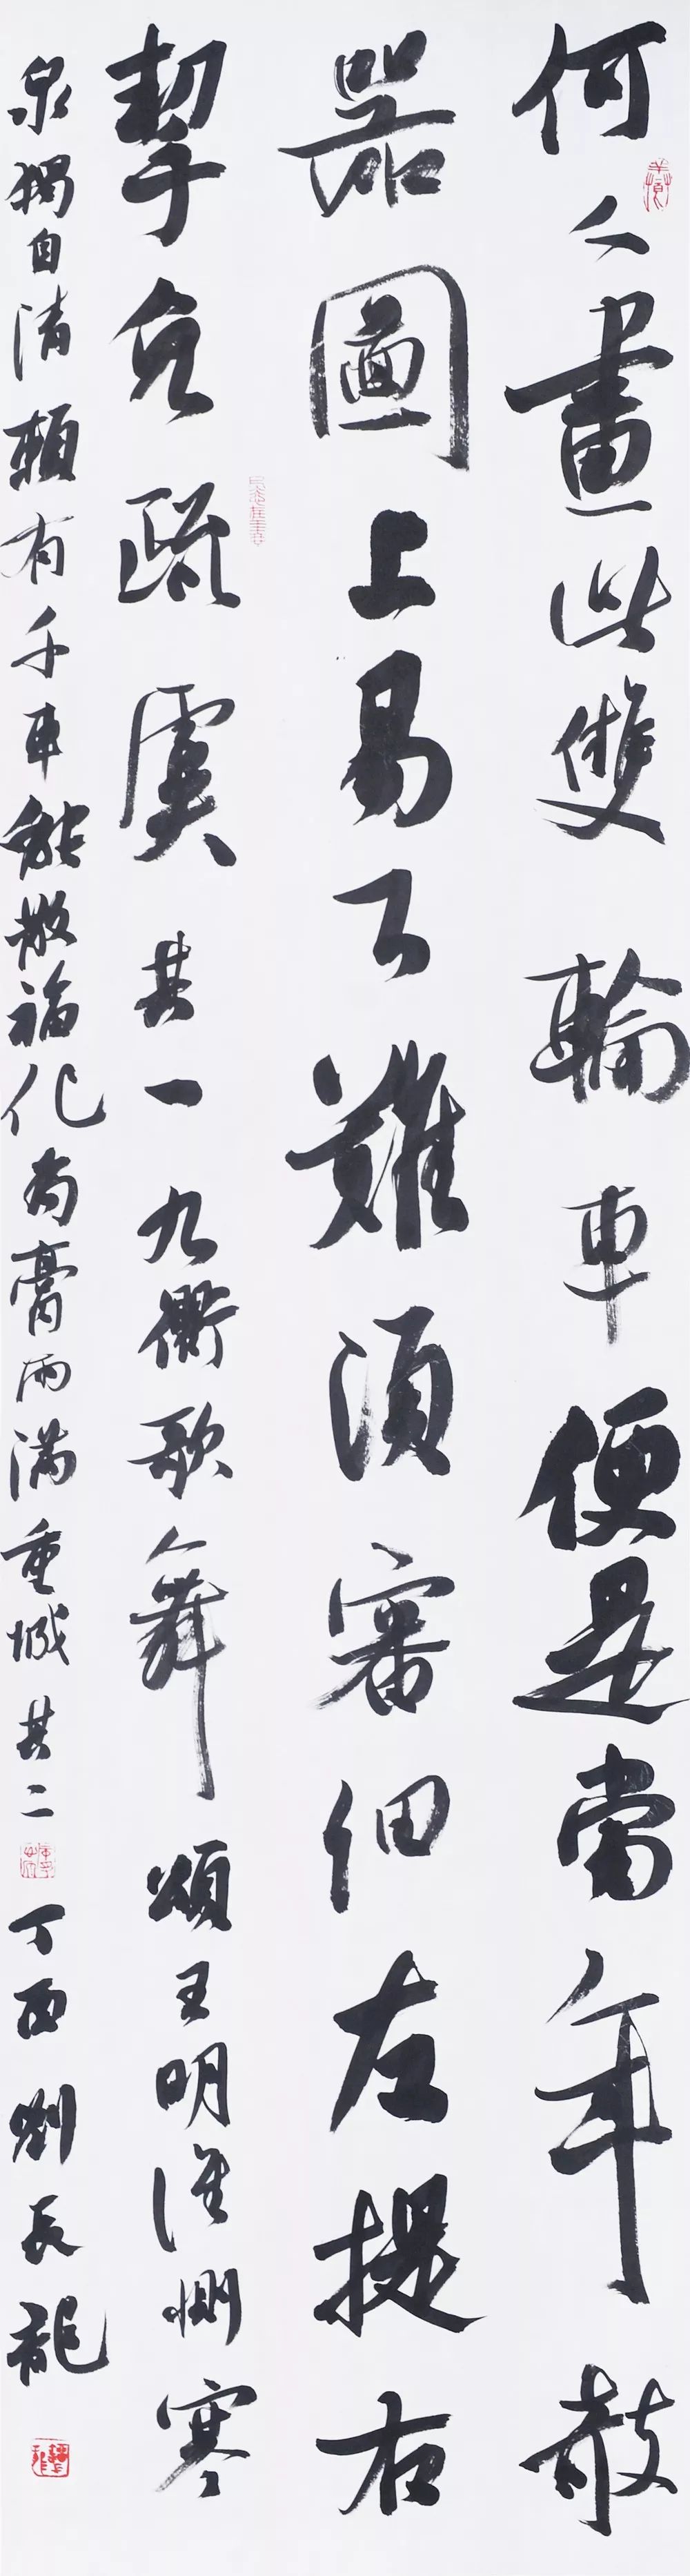 何人畫此雙輪車便是當年欹
器圖上易下難須審細左提右
挈免疏虞其一九衢歌舞頌王明誰惻寒
泉獨自清賴有千車能散福化為膏雨滿重城其二丁酉劉長龍